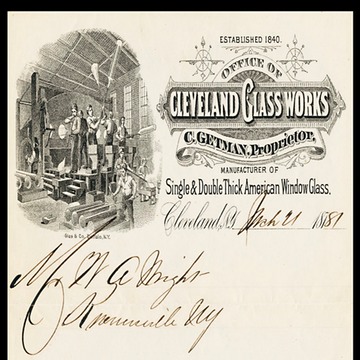 ESTABLISHED 1840.
OFFICE OF
CLEVELAND GLASS WORKS
C. GETMAN, Proprietor,
MANUFACTURER OF
Single & Double Thick American Window Glass,
Cleveland, N.Y. Mch 21 1881
Gies & Co. Buffalo, N.Y.
Mr W A Wright
NY